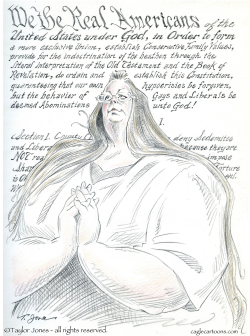 We the Real Americans of the
United States under God, in Order to form
a more exclusive Union, establish Conservative Family Values,
provide for the indoctrination of the heathen through the
literal interpretation of the Old Testament and the Book of
Revelation, do ordain and establish this Constitution,
guaranteeing that our own hypocrisies be forgiven,
but the behavior of Gays and Liberals be
deemed Abominations unto God!
I.
Section 1. County deny Sodomites
and Liber because they are
NOT re impose
Shar
T. Jones
©Taylor Jones - all rights reserved.
caglecartoons.com